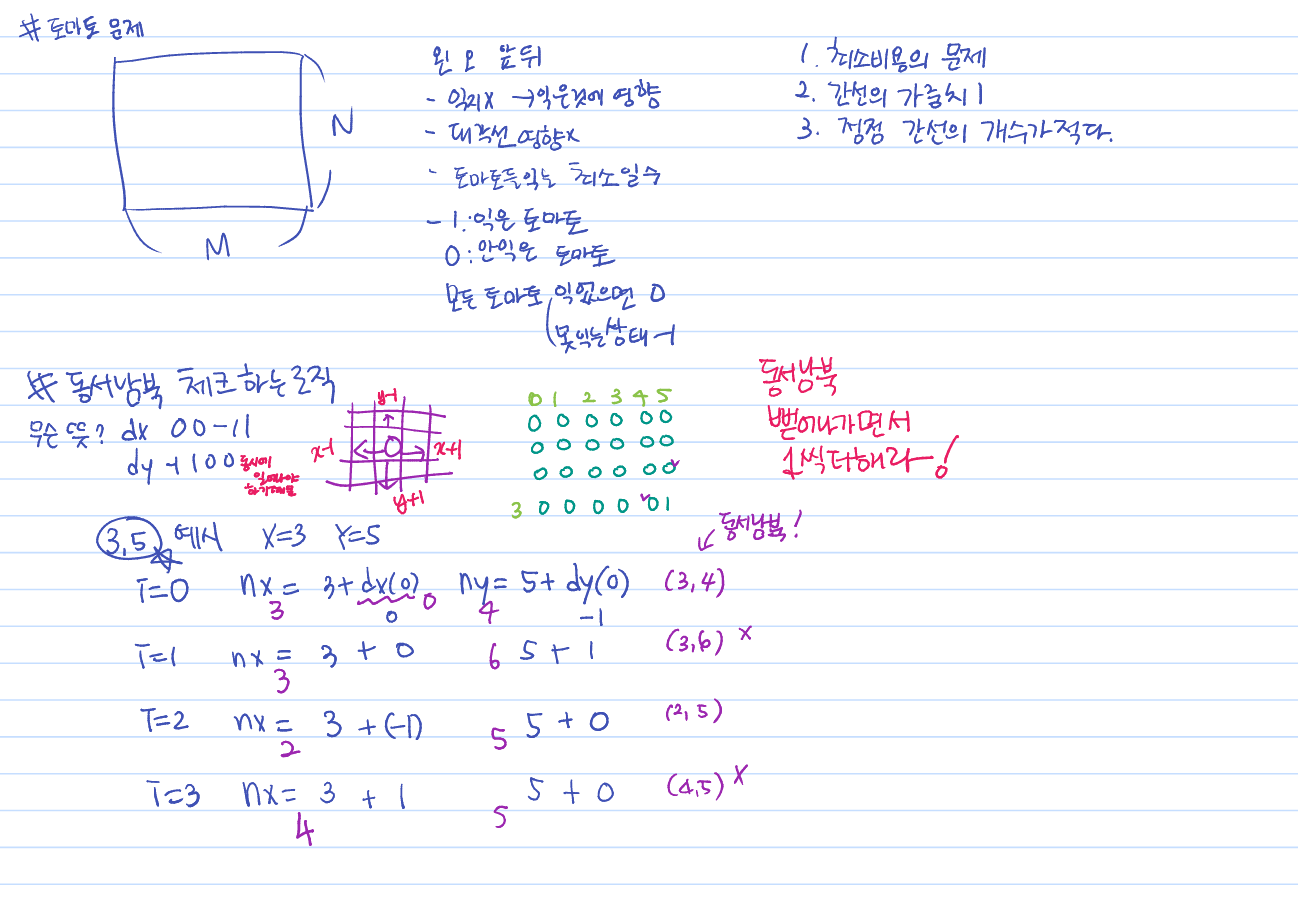 # 토마토 문제
N
M
왼 오 앞뒤
- 익지x → 익은것에 영향
- 대각선 영향x
- 토마토들익는 최소일수
- 1: 익은 토마토
0: 안익은 토마토
모든 토마토 익었으면 0
못익는상태 -1
1. 최소비용의 문제
2. 간선의 가중치 1
3. 정점 간선의 개수가적다.
# 동서남북 체크하는로직
무슨 뜻? dx 0 0 -1 1
dy -1 1 0 0
동시에
일어나야
하기때문
y-1
x-1
x+1
y+1
0 1 2 3 4 5
0 0 0 0 0 0
0 0 0 0 0 0
0 0 0 0 0 0
3 0 0 0 0 0 1
동서남북
뻗어나가면서
1씩더해라~!
3,5 예시 X=3 Y=5
동서남북!
T=0 nx = 3+dx(0) ny= 5+dy(0) (3,4)
3 0 0 4 -1
T=1 nx = 3 + 0 6 5+ 1 (3,6) x
3
T=2 nx = 3 +(-1) 5 5 + 0 (2,5)
2
T=3 nx= 3 + 1 5 5 + 0 (4,5) x
4